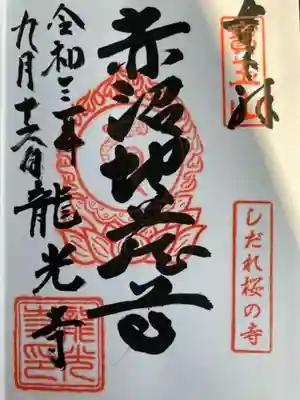 奉拝
赤沼地蔵尊
しだれ桜の寺
令和三年
九月十六日
龍光寺